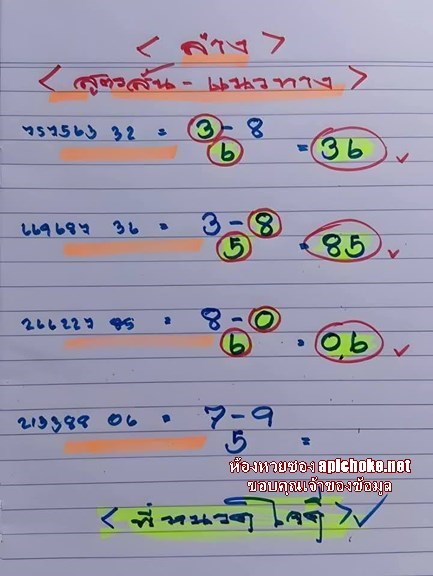 < ล่าง >
< สูตรลับ - แนวทาง >
757563 32 = 3 - 8
6 = 36 ✓
669687 36 = 3 - 8
5 = 85 ✓
266227 85 = 8 - 0
6 = 06 ✓
213388 06 = 7 - 9
5 =
ห้องหวยซอง apichoke.net
ขอบคุณเจ้าของข้อมูล
< พี่หนวดใจดี > ✓